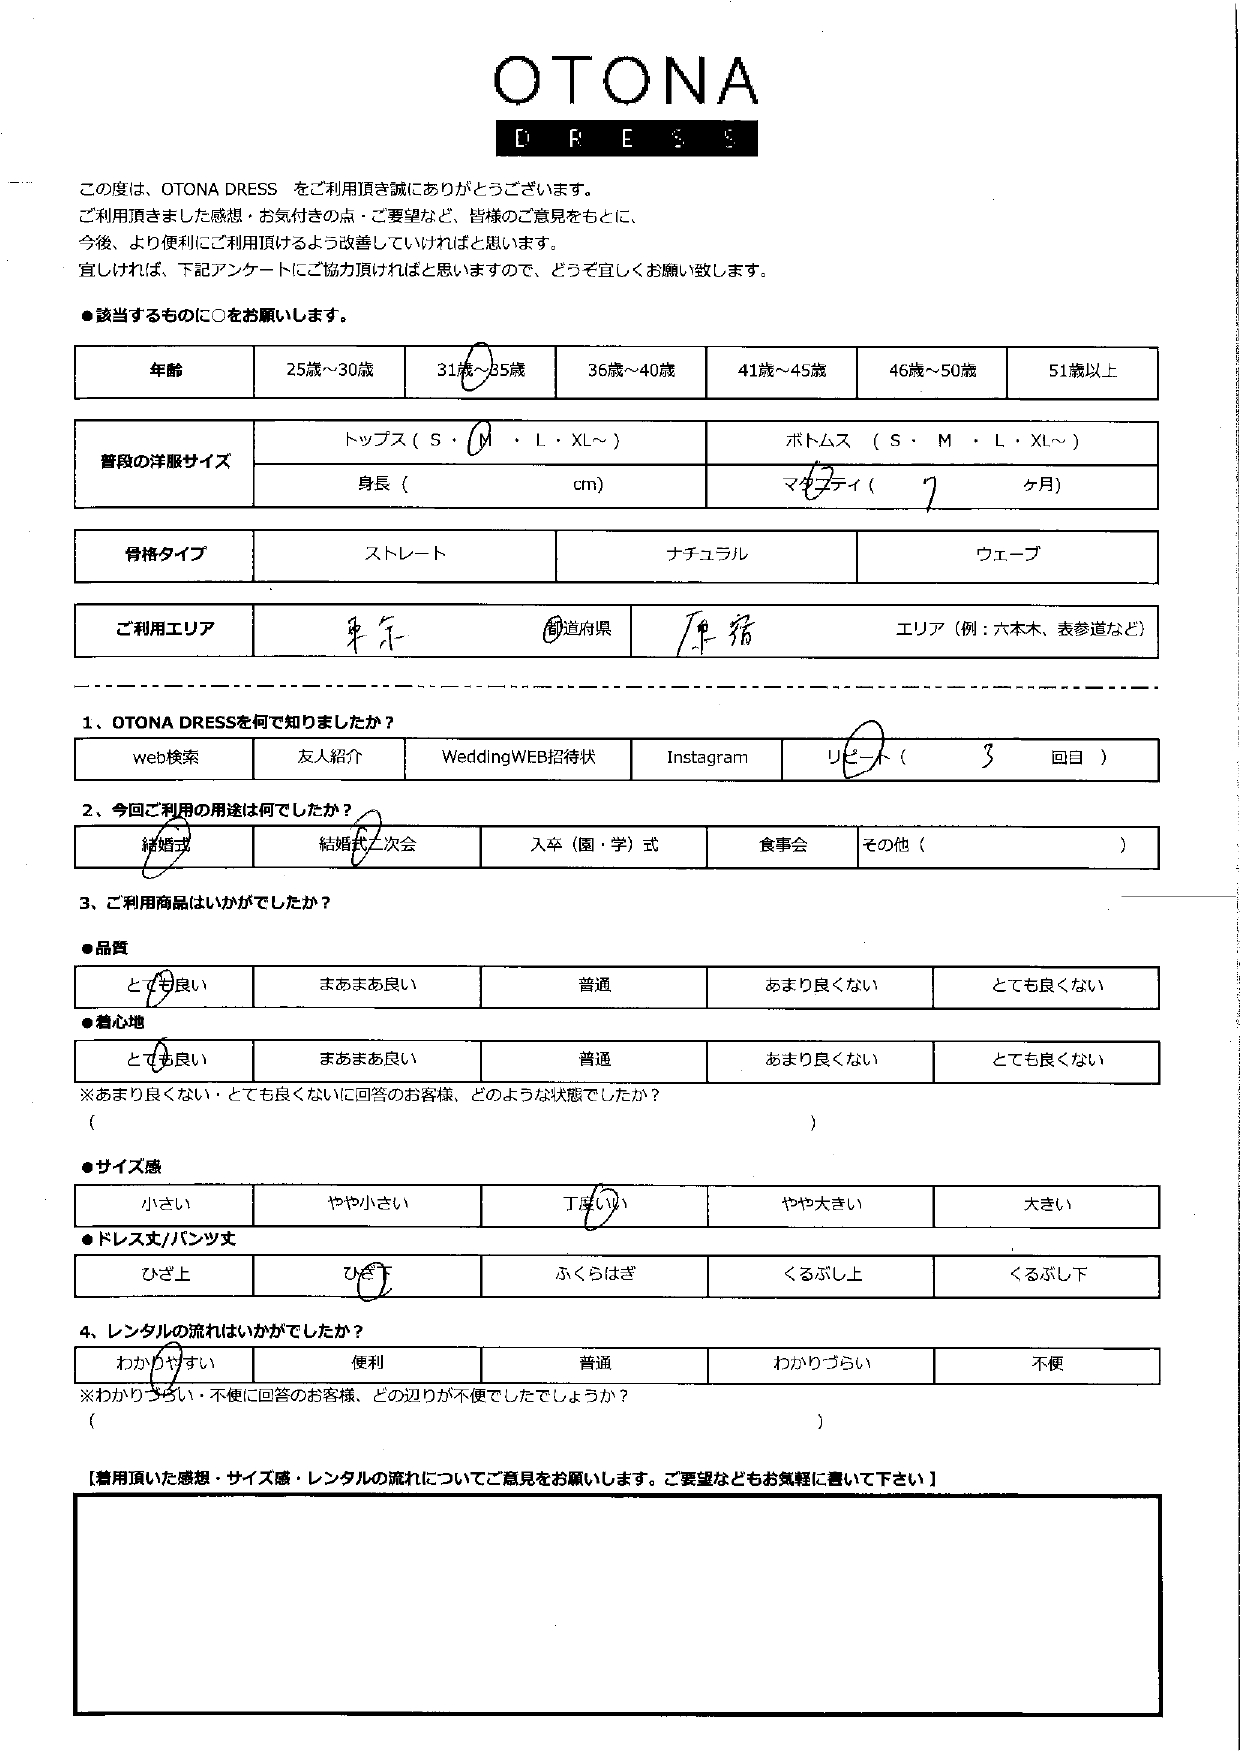 OTONA
DRESS
この度は、OTONA DRESS　をご利用頂き誠にありがとうございます。
ご利用頂きました感想・お気付きの点・ご要望など、皆様のご意見をもとに、
今後、より便利にご利用頂けるよう改善していければと思います。
宜しければ、下記アンケートにご協力頂ければと思いますので、どうぞ宜しくお願い致します。
●該当するものに○をお願いします。
年齢 25歳～30歳 31歳～35歳 36歳～40歳 41歳～45歳 46歳～50歳 51歳以上
普段の洋服サイズ トップス ( S ・ M ・ L ・ XL～ ) ボトムス ( S ・ M ・ L ・ XL～ )
身長 ( cm) マタニティ ( 7 ヶ月)
骨格タイプ ストレート ナチュラル ウェーブ
ご利用エリア 東京 都道府県 原宿 エリア（例：六本木、表参道など）
1、OTONA DRESSを何で知りましたか？
web検索 友人紹介 WeddingWEB招待状 Instagram リピート（ 3 回目 ）
2、今回ご利用の用途は何でしたか？
結婚式 結婚式二次会 入卒（園・学）式 食事会 その他（ ）
3、ご利用商品はいかがでしたか？
●品質
とても良い まあまあ良い 普通 あまり良くない とても良くない
●着心地
とても良い まあまあ良い 普通 あまり良くない とても良くない
※あまり良くない・とても良くないに回答のお客様、どのような状態でしたか？
（ ）
●サイズ感
小さい やや小さい 丁度いい やや大きい 大きい
●ドレス丈/パンツ丈
ひざ上 ひざ下 ふくらはぎ くるぶし上 くるぶし下
4、レンタルの流れはいかがでしたか？
わかりやすい 便利 普通 わかりづらい 不便
※わかりづらい・不便に回答のお客様、どの辺りが不便でしたでしょうか？
（ ）
【着用頂いた感想・サイズ感・レンタルの流れについてご意見をお願いします。ご要望などもお気軽に書いて下さい】